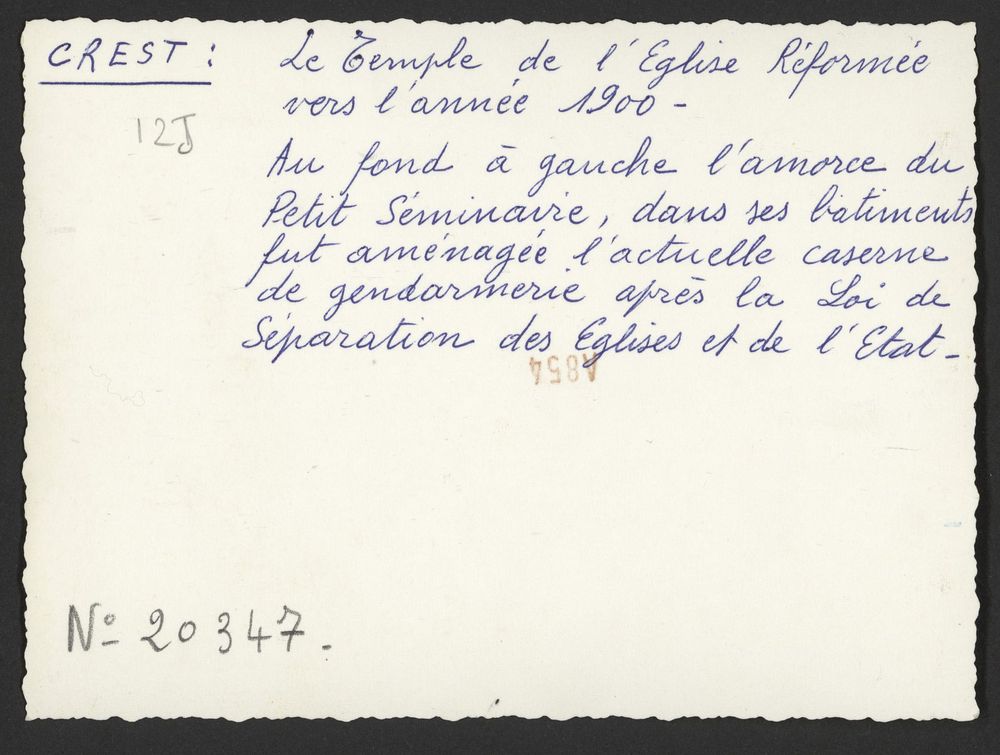 CREST : Le Temple de l'Eglise Réformée
vers l'année 1900 -
12J
Au fond à gauche l'amorce du
Petit Séminaire, dans ses bâtiments
fut aménagée l'actuelle caserne
de gendarmerie après la Loi de
Séparation des Eglises et de l'Etat -
A854
N° 20347.